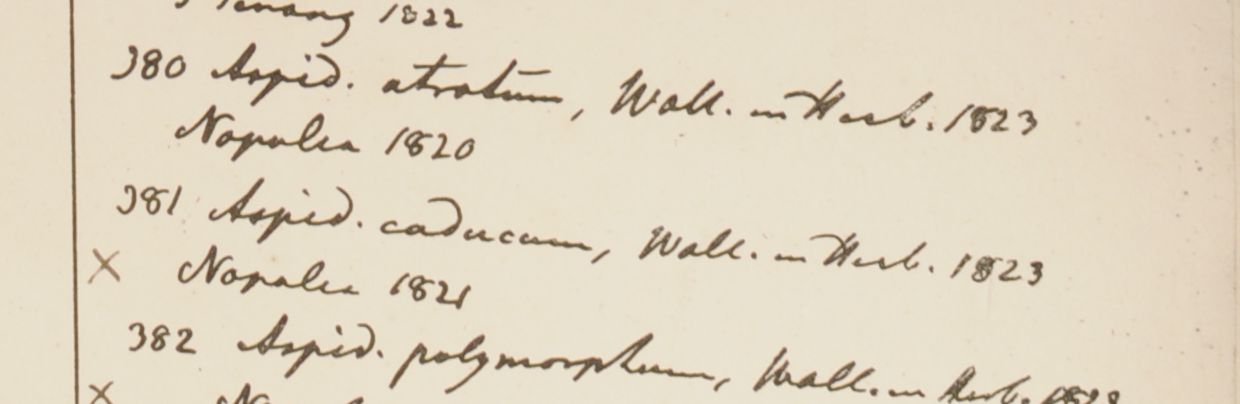 Penang 1822
380 Aspid. atratum, Wall. in Herb. 1823
Napalia 1820
381 Aspid. caducum, Wall. in Herb. 1823
× Napalia 1821
382 Aspid. polymorphum, Wall. in Herb.
×